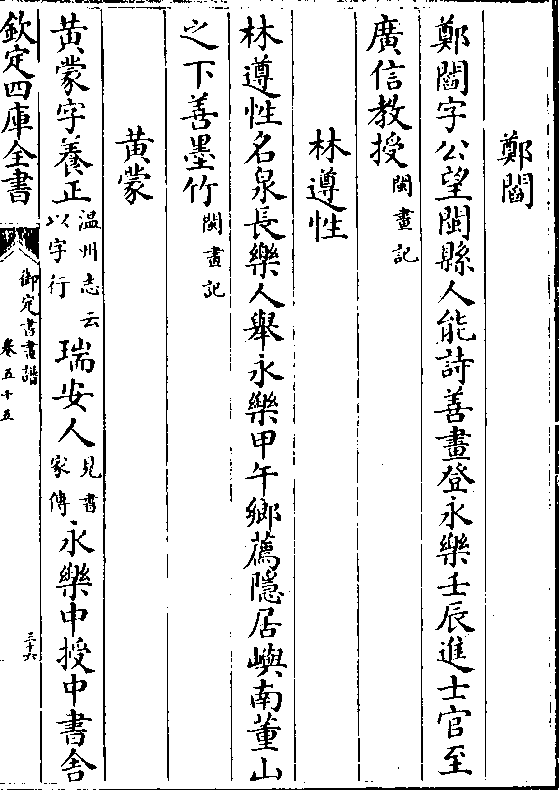 鄭閻
鄭閻字公望閩縣人能詩善畫登永樂壬辰進士官至
廣信教授閩畫記
林遵性
林遵性名泉長樂人舉永樂甲午鄉薦隱居嶼南董山
之下善墨竹閩畫記
黃蒙
黃蒙字養正溫州志云以字行瑞安人見書家傳永樂中授中書舍
欽定四庫全書
御定書畫譜
卷五十五
三十六